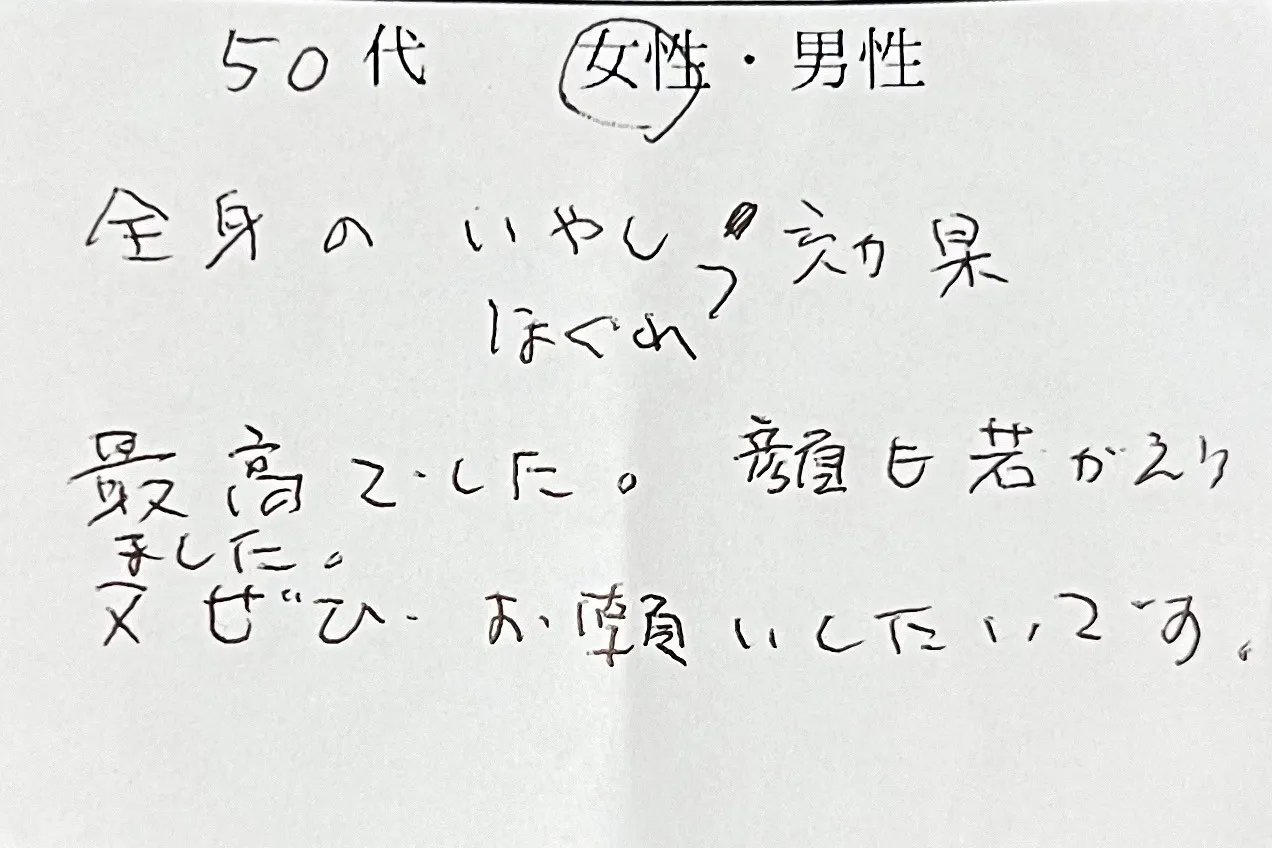 50代 女性・男性
全身の いやし 効果
ほぐれ
最高でした。 顔も若がえり
ました。
又ぜひ お願いしたいです。